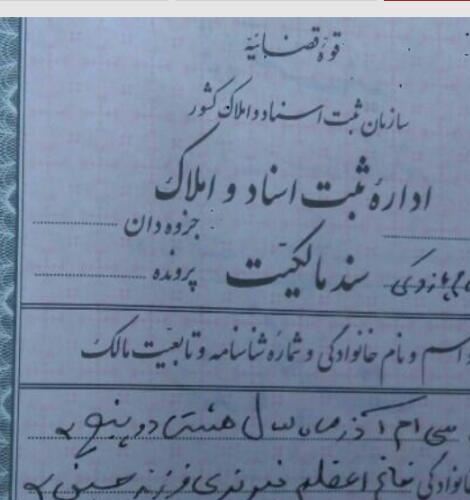 قوهٔ قضائیّه
سازمان ثبت اسناد و املاک کشور
ادارهٔ ثبت اسناد و املاک
جزوه دان
سند مالکیّت پرونده
اسم و نام خانوادگی و شمارهٔ شناسنامه و تابعیّت مالک
سی ام آذر ماه سال هشتاد و پنج
خانوادگی فرزند حسین